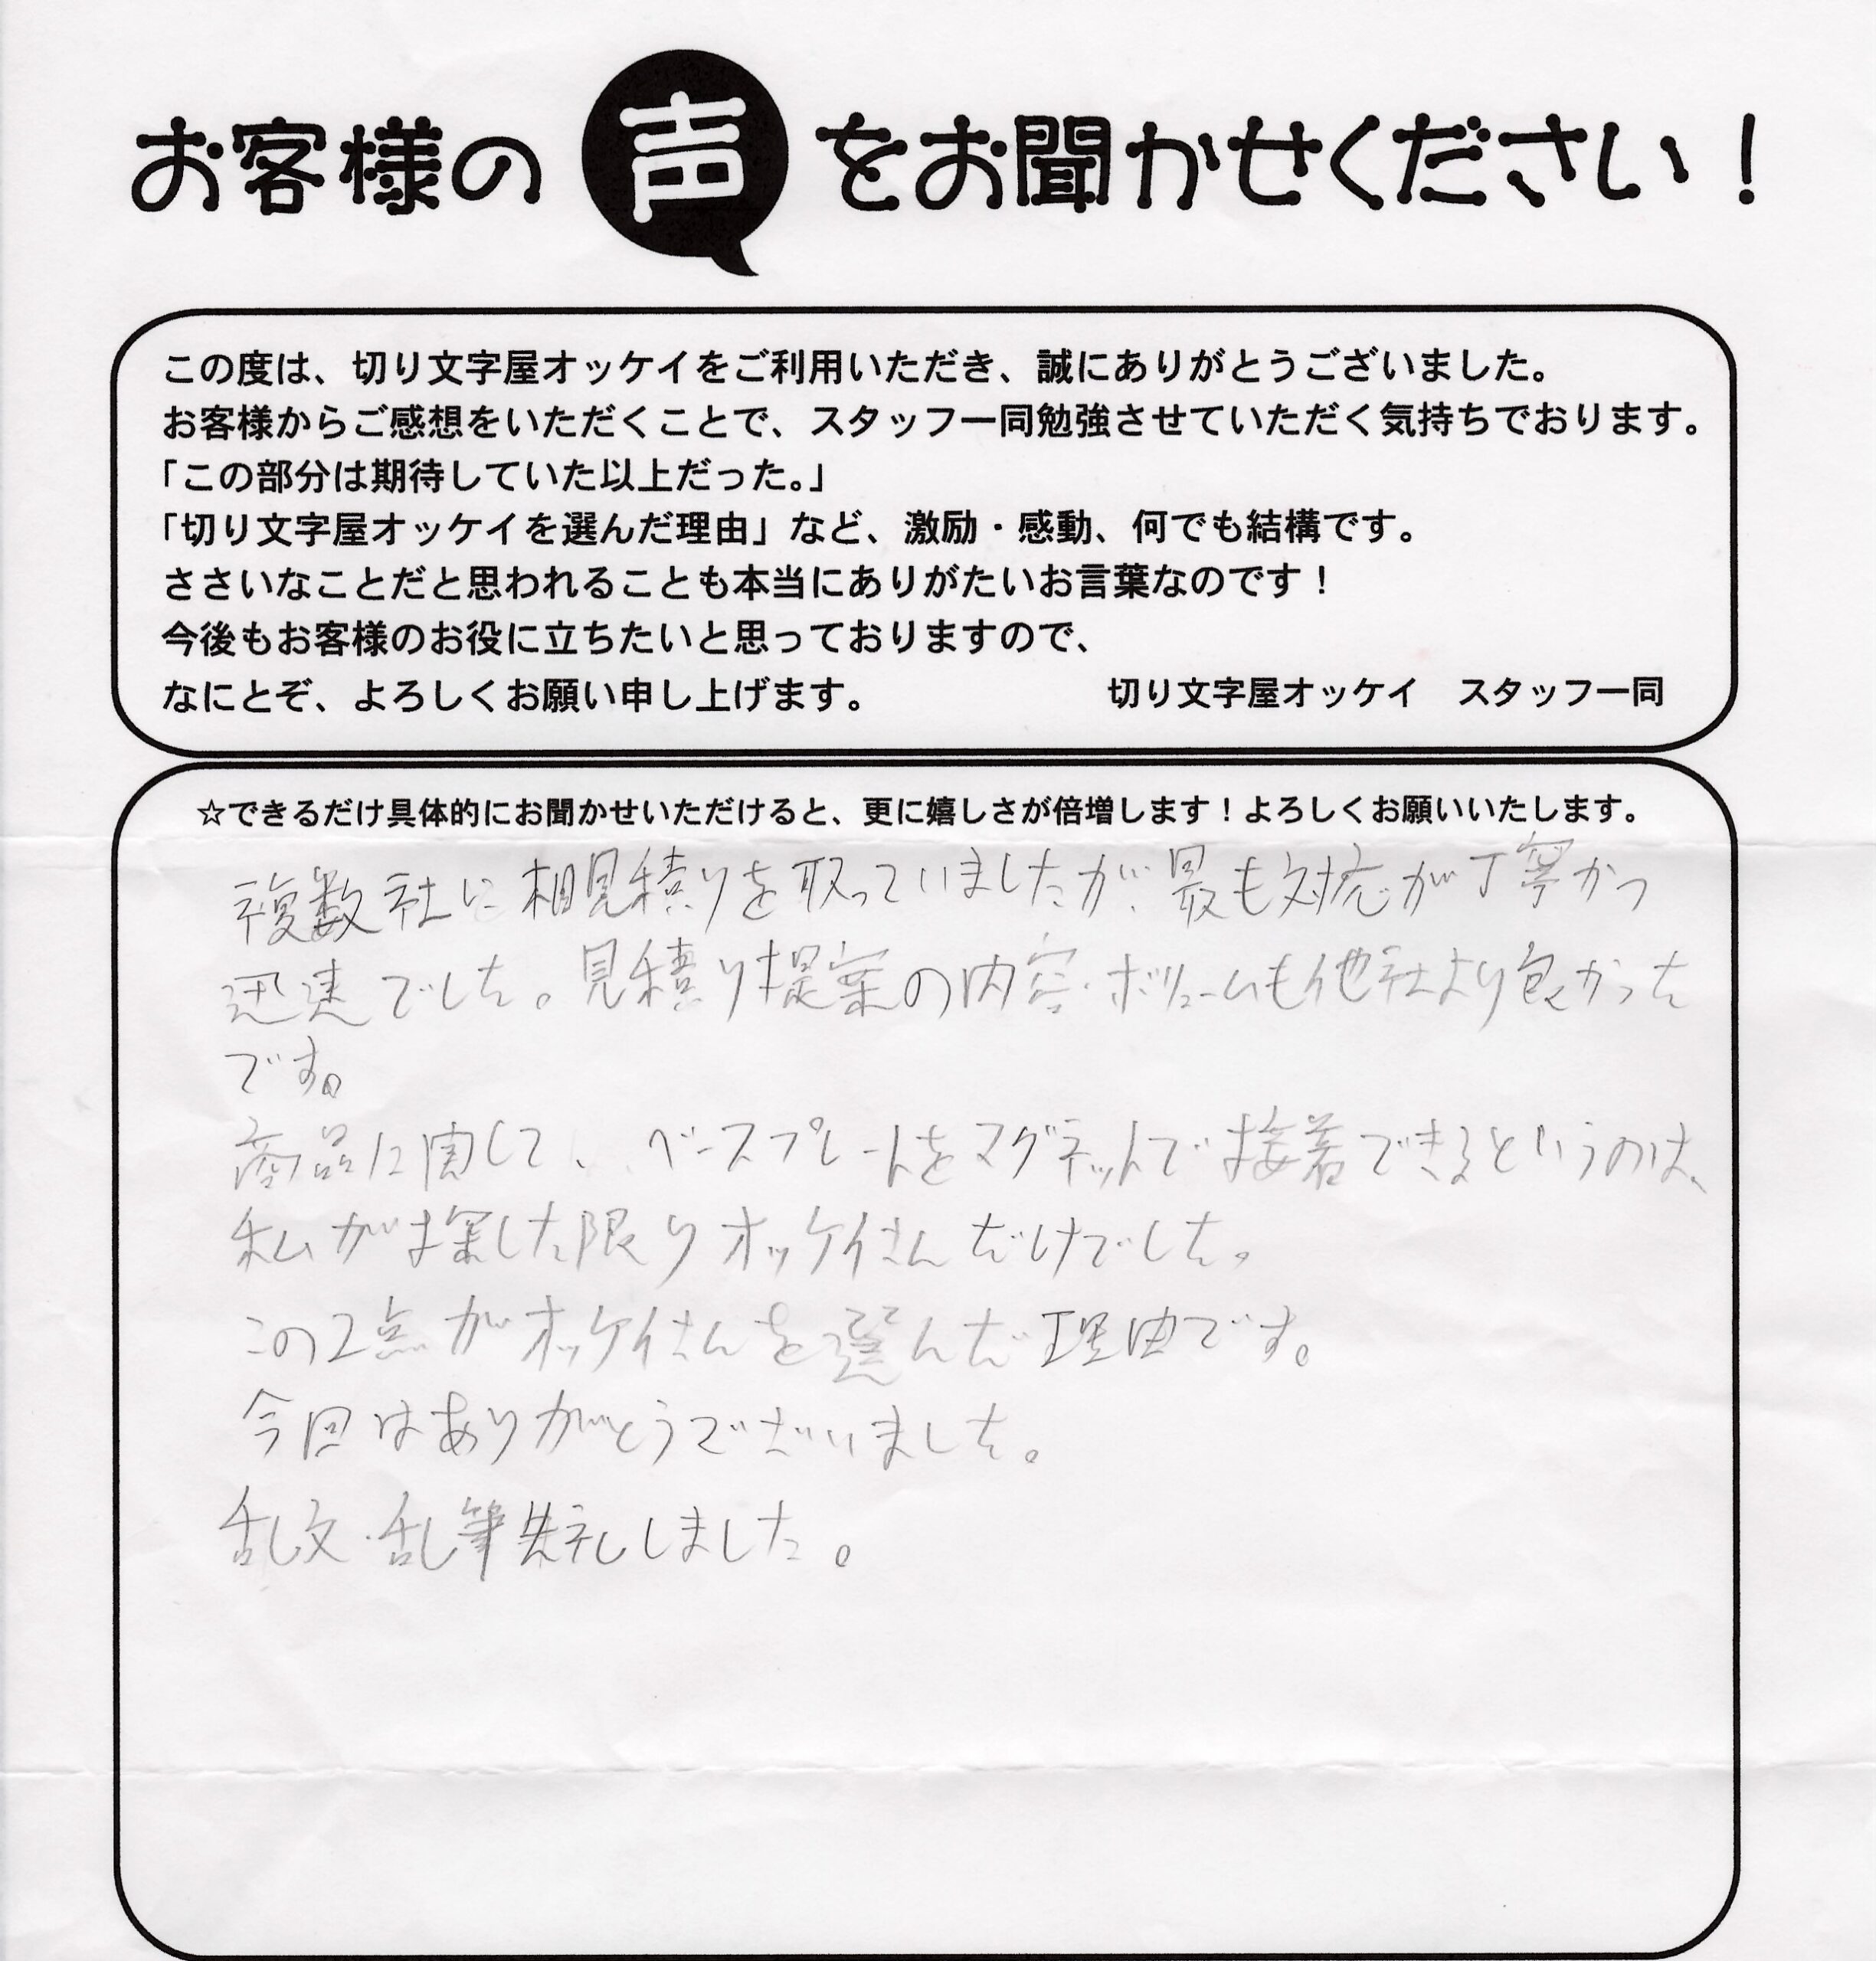 お客様の声をお聞かせください！
この度は、切り文字屋オッケイをご利用いただき、誠にありがとうございました。
お客様からご感想をいただくことで、スタッフ一同勉強させていただく気持ちでおります。
「この部分は期待していた以上だった。」
「切り文字屋オッケイを選んだ理由」など、激励・感動、何でも結構です。
ささいなことだと思われることも本当にありがたいお言葉なのです！
今後もお客様のお役に立ちたいと思っておりますので、
なにとぞ、よろしくお願い申し上げます。　切り文字屋オッケイ　スタッフ一同
☆できるだけ具体的にお聞かせいただけると、更に嬉しさが倍増します！よろしくお願いいたします。
複数社に相見積りを取っていましたが、最も対応が丁寧かつ
迅速でした。見積り提案の内容・ボリュームも他社より良かった
です。
商品に関して、ベースプレートをマグネットで接着できるというのは、
私が探した限りオッケイさんだけでした。
この2点がオッケイさんを選んだ理由です。
今回はありがとうございました。
乱文・乱筆失礼しました。